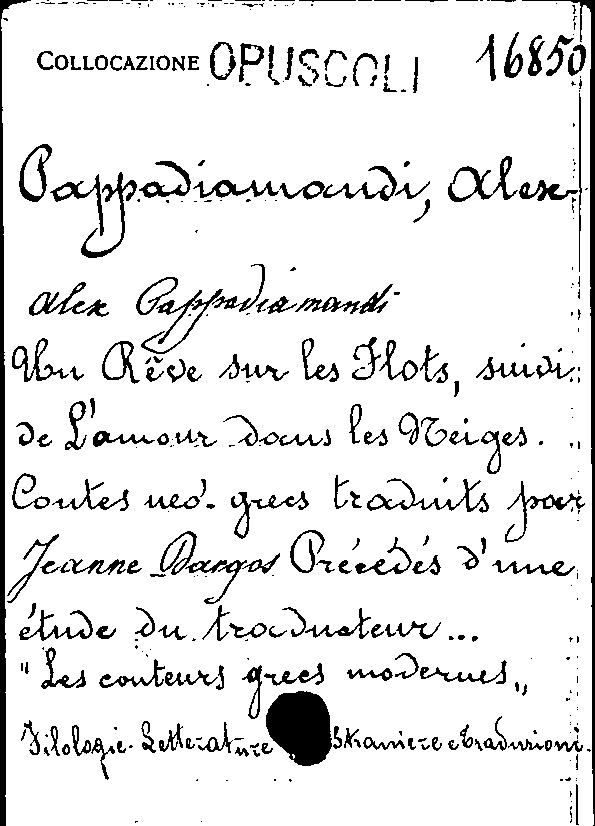 COLLOCAZIONE OPUSCOLI 16850
Pappadiamandi, Alex
Alex Pappadiamandi
Un Rêve sur les Flots, suivi
de L'amour dans les Neiges.
Contes néo-grecs traduits par
Jeanne Dargos Précédés d'une
étude du traducteur...
"Les conteurs grecs modernes„
Filologie. Letterature Straniere e traduzioni.